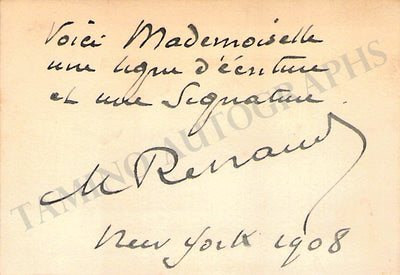 Voici Mademoiselle
une ligne d'écriture
et une Signature.
M Renaud
New York 1908
TAMINO AUTOGRAPHS